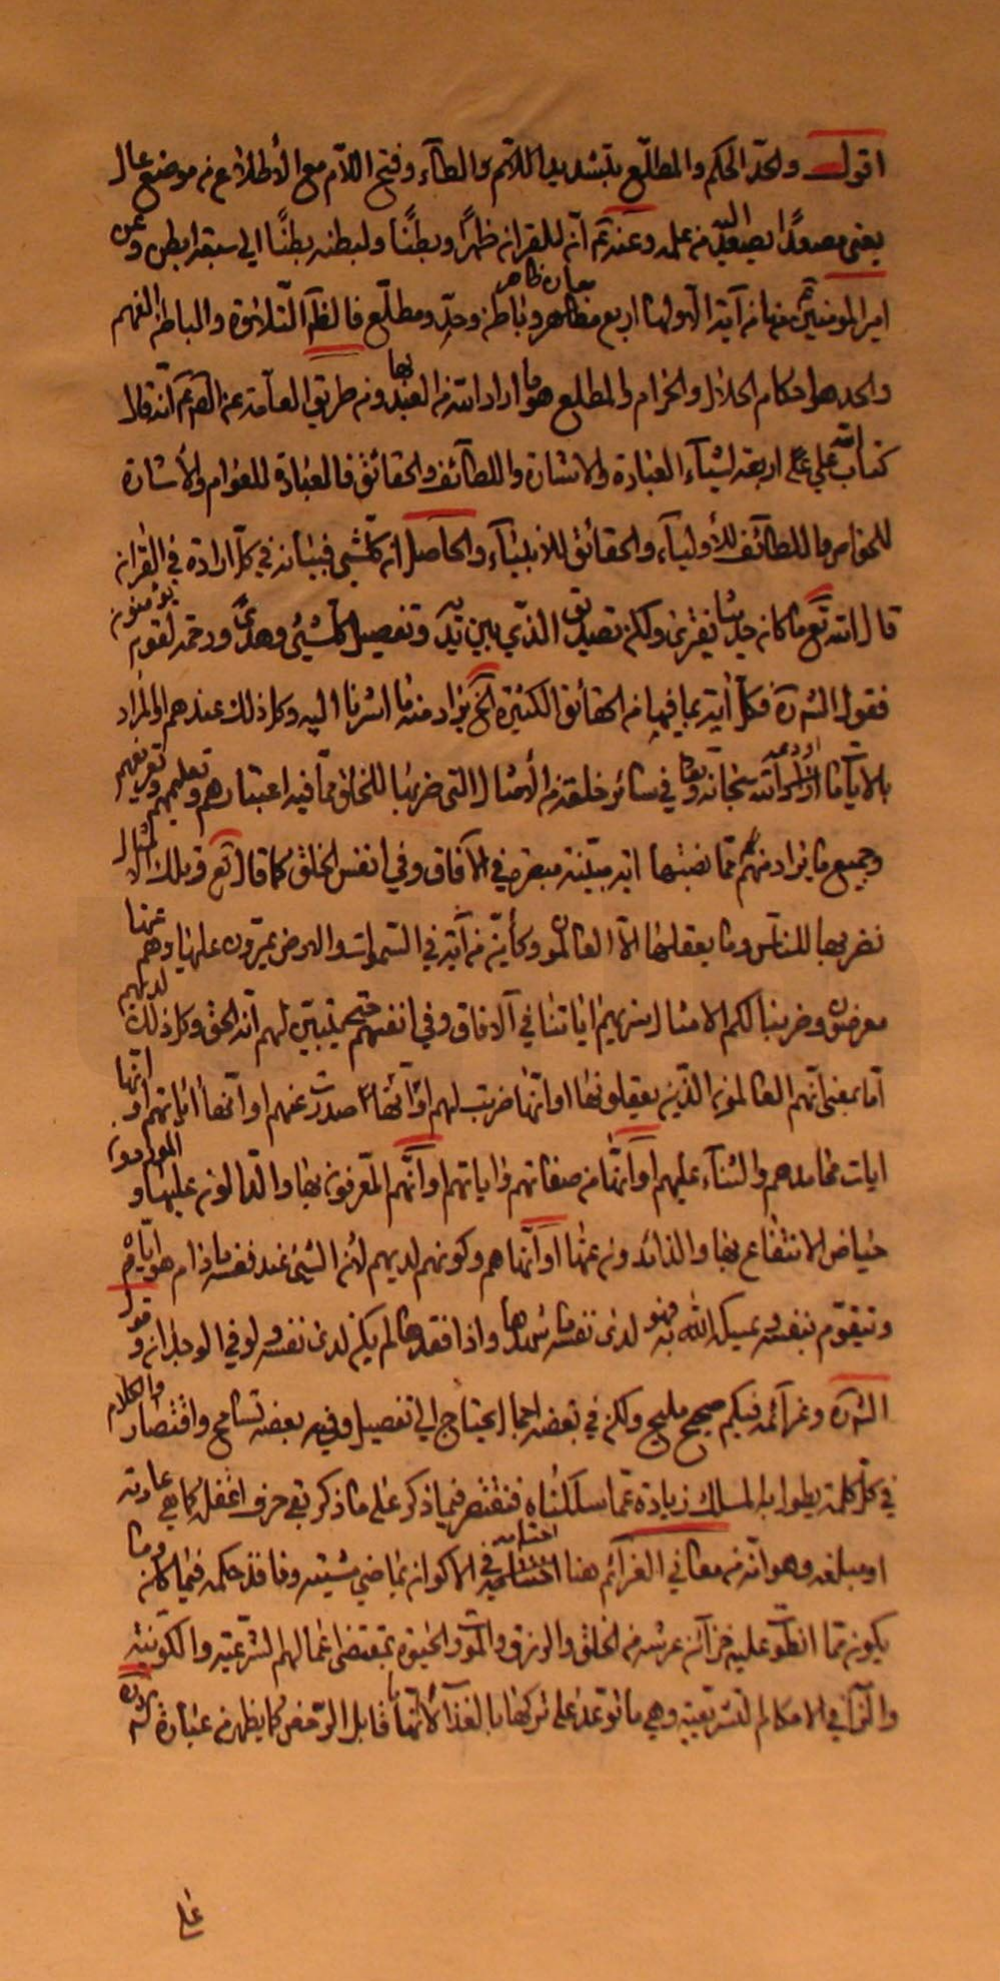 اقول والحدّ الحكم والمطّلع بتشديد اللام والطآء وفتح اللاّم مع الأطلاع من موضع عال
يعنى مصعدًا يصعد اليه من علمه وعنهم انّ للقرانه ظهرًا وبطنًا ولبطنه بطنًا الى سبعة ابطن وعن
امير المومنين ما من آية الا ولها اربع معان ظاهر وباطن وحدّ ومطلّع فالظآهر التلاوة والباطن الفهم
والحد هو احكام الحلال والحرام والمطلع هو ما اراد الله من العبد بها ومن طريق العآمة عن انّه قال
كتاب الله على اربعة اشيآء العبادة والاشارة واللطآئف والحقائق فالعبادة للعوام والأشارة
للخواص واللطآئف للأوليآء والحقائق للأنبيآء والحاصل ان كلّشيئ فبيانه في كلّ ارادة في القرانه
قال الله تع ما كان حديثا يفترى ولكن تصديق الذّي بين يديه وتفصيل كلّشيئ وهدىً ورحمة لقوم يؤمنون
فقول الش ره فكلّ آية بما فيها من الحقائق الكثيرة الخ يراد منه ما اشرنا اليه وكذلك عندهم والمراد
بالايات ما اودعه الله سبحانه وتعا في سائر خلقه من الأمثال التى ضربها للخلق ممّا فيه اعتبارهم وتعليمهم وتعريفهم
وجميع ما يراد منهم ممّا نصبه اية مبيّنة في الآفاق وفي انفس الخلق كما قال تع وتلك الامثال
نضربها للناس وما يعقلها الاّ العالمون وكأيّن من آية في السموات والارض يمرّون عليها وهم عنها
معرضون وضربنا لكم الامثال سنريهم اياتنا في الآفاق وفي انفسهم حتى يتبيّن لهم انّه الحق وكذلك لديهم
امّا بمعنى انّهم العالمون الذّين يعقلونها او انّها ضربت لهم او انّها صدرت عنهم او انّها اياتهم او انّها
ايات محامدهم والثنآء عليهم او انّها من صفاتهم واياتهم او انّهم المعرفون بها والدّالون عليها و
حياض الانتفاع بها والذائدون عنها او انّها هم وكونهم لديهم لأن الشيئ عند نفسه ما دام هو ايّاه
ويتقوّم بنفسه يمسكه الله به فهو لدى نفسه ما شهدها واذا فقدها لم يكن لدى نفسه ولو في الوجدان وقول
الش ره وعزآئمه فيكم صحيح مليح ولكن في بعضه اجمال يحتاج الى تفصيل وفي بعضه تسامح واقتصار والكلام
في كلّ كلمة يطول به المسلك زيادة عمّا سلكناه فنقتصر فيما ذكر على ما ذكر بقي حرف اغفله كما هي عادته
او مبلغه وهو انّه من معاني العزآئم هنا في الاكوان بماضي مشيّته ونافذ حكمه فيما كان وما
يكون ممّا انطوت عليه خزآئن عرشه من الخلق والرزق والموت والحيوة بمقتضى اعمالهم الشرعية والكونية
والتزآمي الاحكام التشريعية وهي ما توعد على تركها بالعذاب لأنّها قابل الرّخص كما يظهر من عبارة الش ره
على